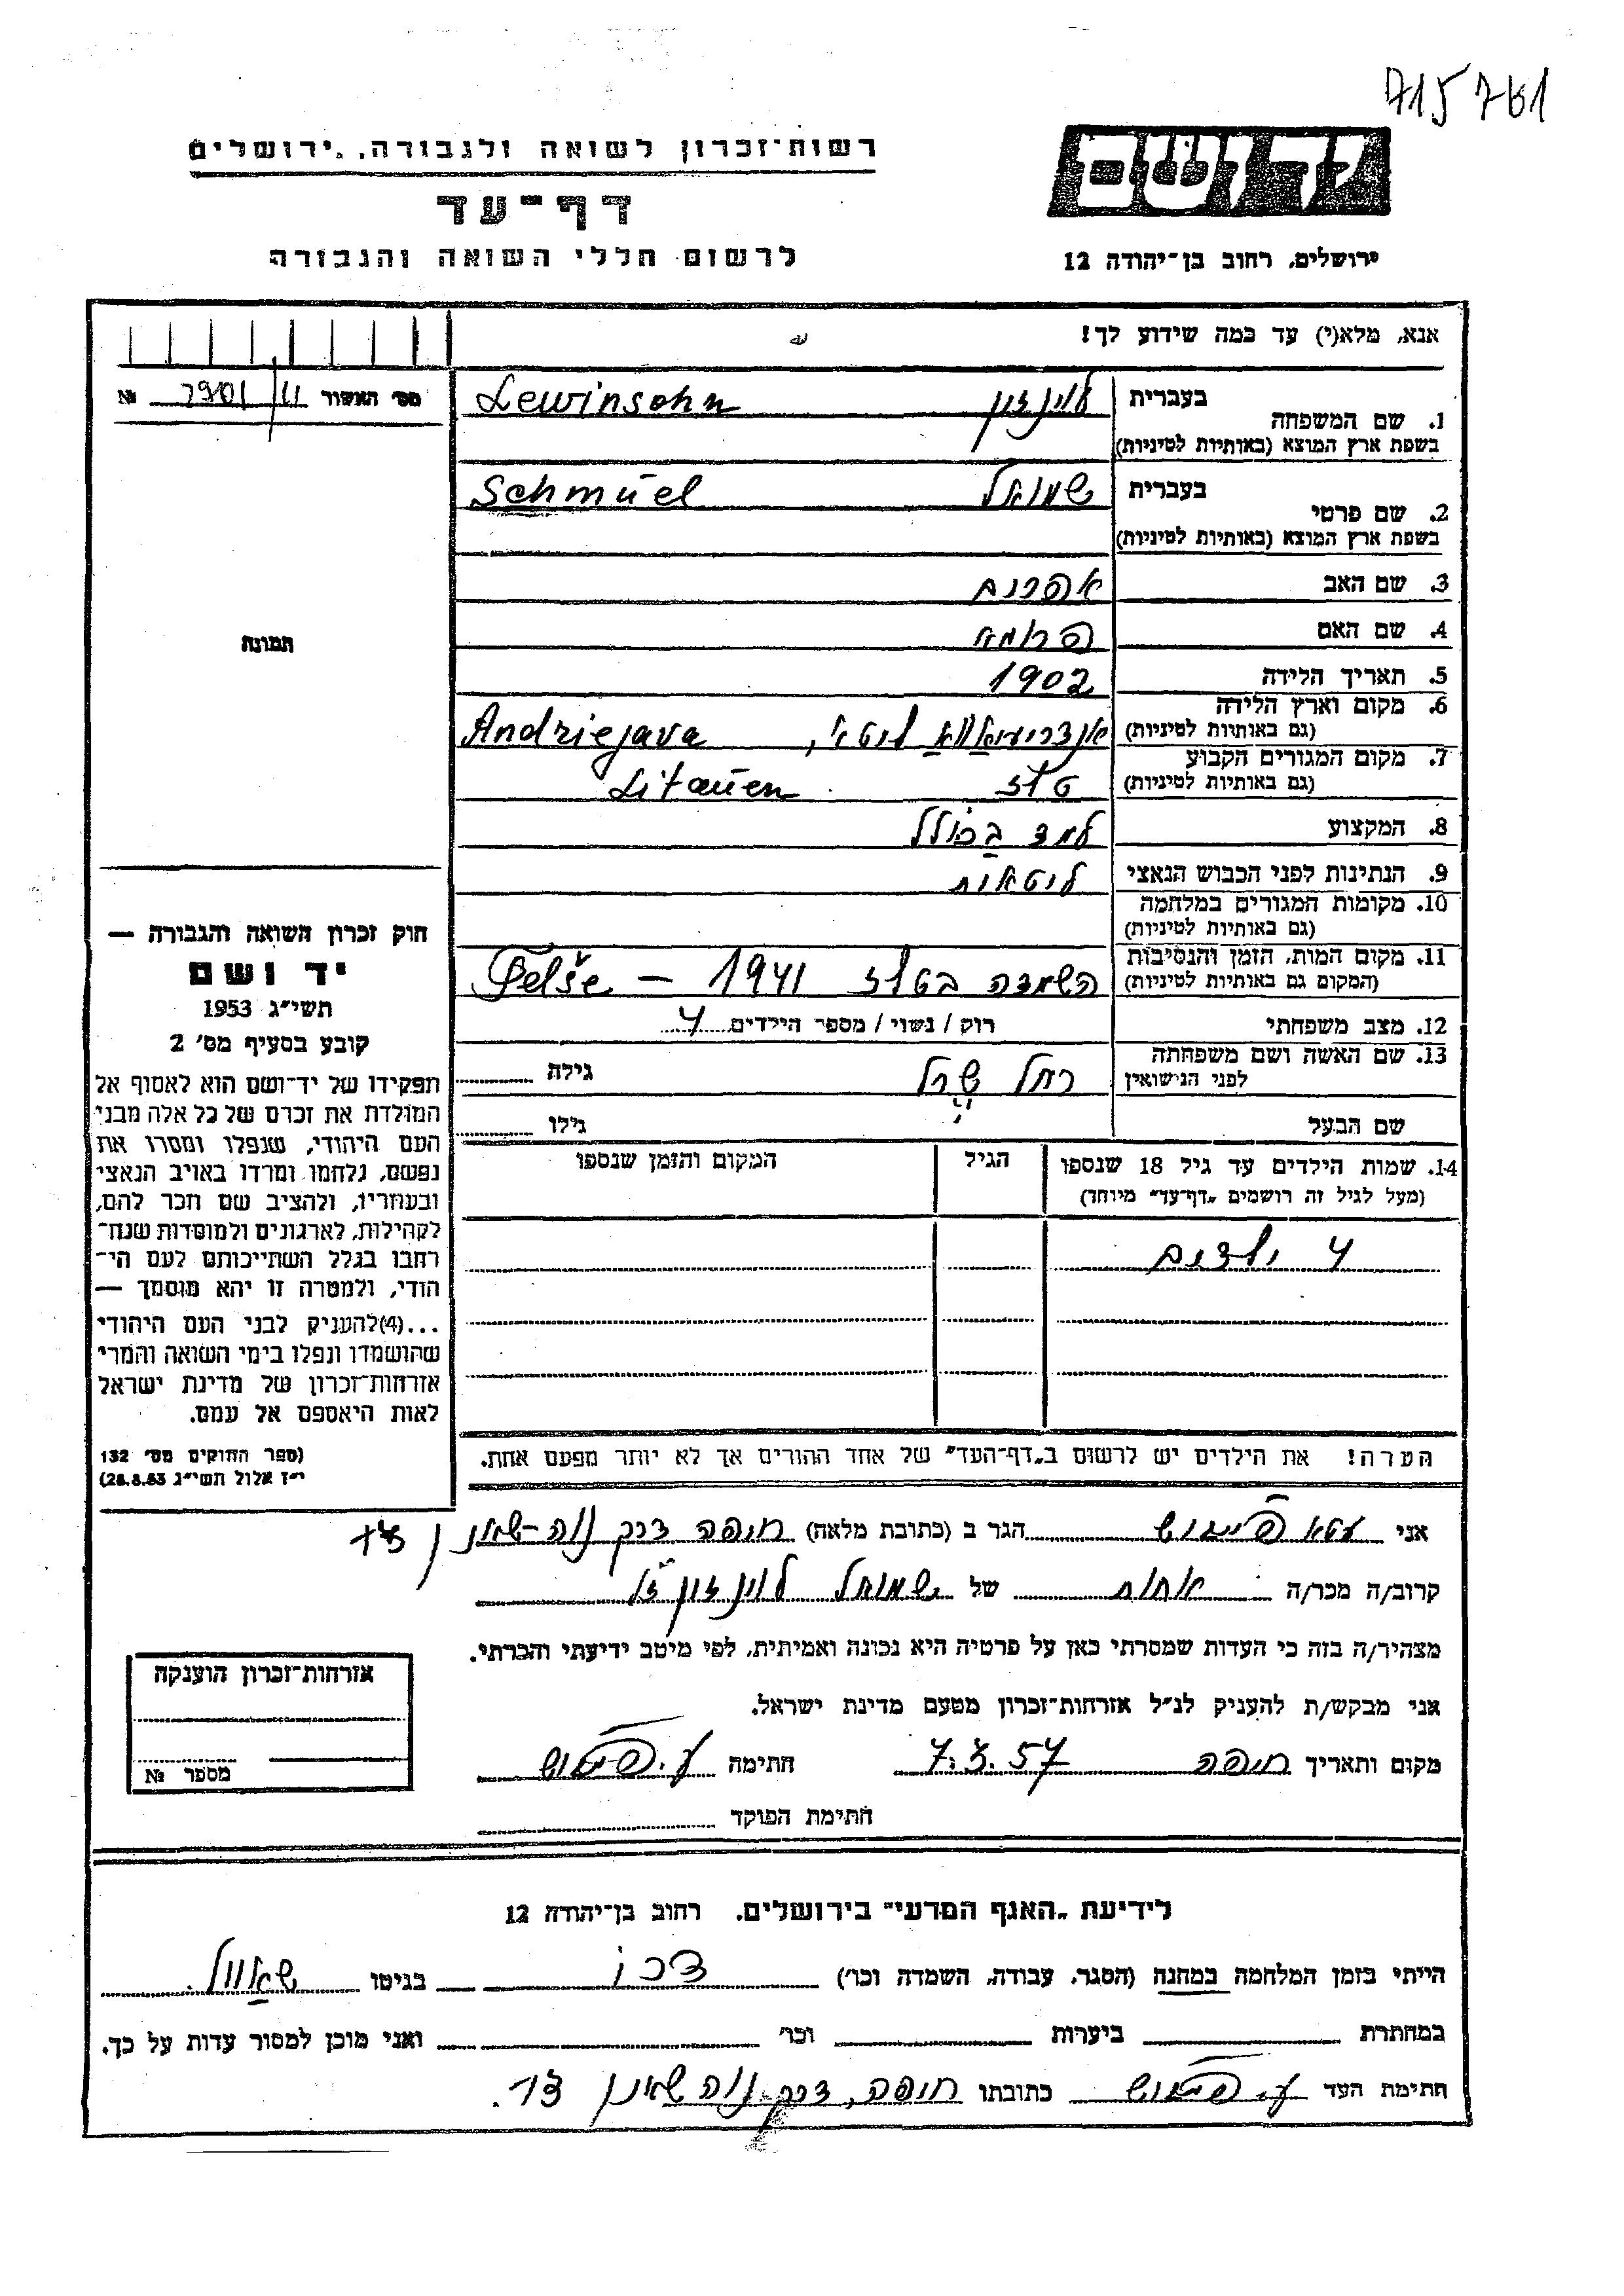 715761
יד ושם
רשות־זכרון לשואה ולגבורה, ירושלים
דף־עד
לרשום חללי השואה והגבורה
ירושלים, רחוב בן־יהודה 12
אנא, מלא(י) עד כמה שידוע לך!
מס׳ האשור № 2901/
1. שם המשפחה בעברית לוינזון Lewinsohn
בשפת ארץ המוצא (באותיות לטיניות)
2. שם פרטי בעברית שמואל Schmuel
בשפת ארץ המוצא (באותיות לטיניות)
3. שם האב אפרים
4. שם האם פרומא
תמונה
5. תאריך הלידה 1902
6. מקום וארץ הלידה ליטא, Andriejava
(גם באותיות לטיניות)
7. מקום המגורים הקבוע טלז Litauen
(גם באותיות לטיניות)
8. המקצוע למד בכולל
9. הנתינות לפני הכבוש הנאצי ליטאית
10. מקומות המגורים במלחמה
(גם באותיות לטיניות)
11. מקום המות, הזמן והנסיבות השמדה בטלז 1941 – Telše
(המקום גם באותיות לטיניות)
12. מצב משפחתי רוק / נשוי / מספר הילדים 4
13. שם האשה ושם משפחתה רחל גילה
לפני הנישואין
שם הבעל גילו
14. שמות הילדים עד גיל 18 שנספו הגיל המקום והזמן שנספו
(מעל לגיל זה רושמים „דף־עד״ מיוחד)
4 ילדים
הערה! את הילדים יש לרשום ב„דף־העד״ של אחד ההורים אך לא יותר מפעם אחת.
חוק זכרון השואה והגבורה —
יד ושם
תשי״ג 1953
קובע בסעיף מס׳ 2
תפקידו של יד־ושם הוא לאסוף אל
המולדת את זכרם של כל אלה מבני
העם היהודי, שנפלו ומסרו את
נפשם, נלחמו ומרדו באויב הנאצי
ובעוזריו, ולהציב שם וזכר להם,
לקהילות, לארגונים ולמוסדות שנח־
רחבו בגלל השתייכותם לעם הי־
הודי, ולמטרה זו יהא מוסמך —
...(4)להעניק לבני העם היהודי
שהושמדו ונפלו בימי השואה והמרי
אזרחות־זכרון של מדינת ישראל
לאות היאספם אל עמם.
(ספר החוקים מס׳ 132
י״ז אלול תשי״ג 28.8.53)
אני הגר ב (כתובת מלאה) חיפה דרך נוה־שאנן
קרוב/ה מכר/ה אחות של שמואל לוינזון ז״ל
מצהיר/ה בזה כי העדות שמסרתי כאן על פרטיה היא נכונה ואמיתית, לפי מיטב ידיעתי והכרתי.
אני מבקש/ת להעניק לנ״ל אזרחות־זכרון מטעם מדינת ישראל.
מקום ותאריך חיפה 7.3.57 חתימה
חתימת הפוקד
אזרחות־זכרון הוענקה
מספר №
לידיעת „האגף המדעי״ בירושלים, רחוב בן־יהודה 12
הייתי בזמן המלחמה במחנה (הסגר, עבודה, השמדה וכו׳) בגיטו שאוול.
במחתרת ביערות וכו׳ ואני מוכן למסור עדות על כך.
חתימת העד כתובתו חיפה, דרך נוה שאנן